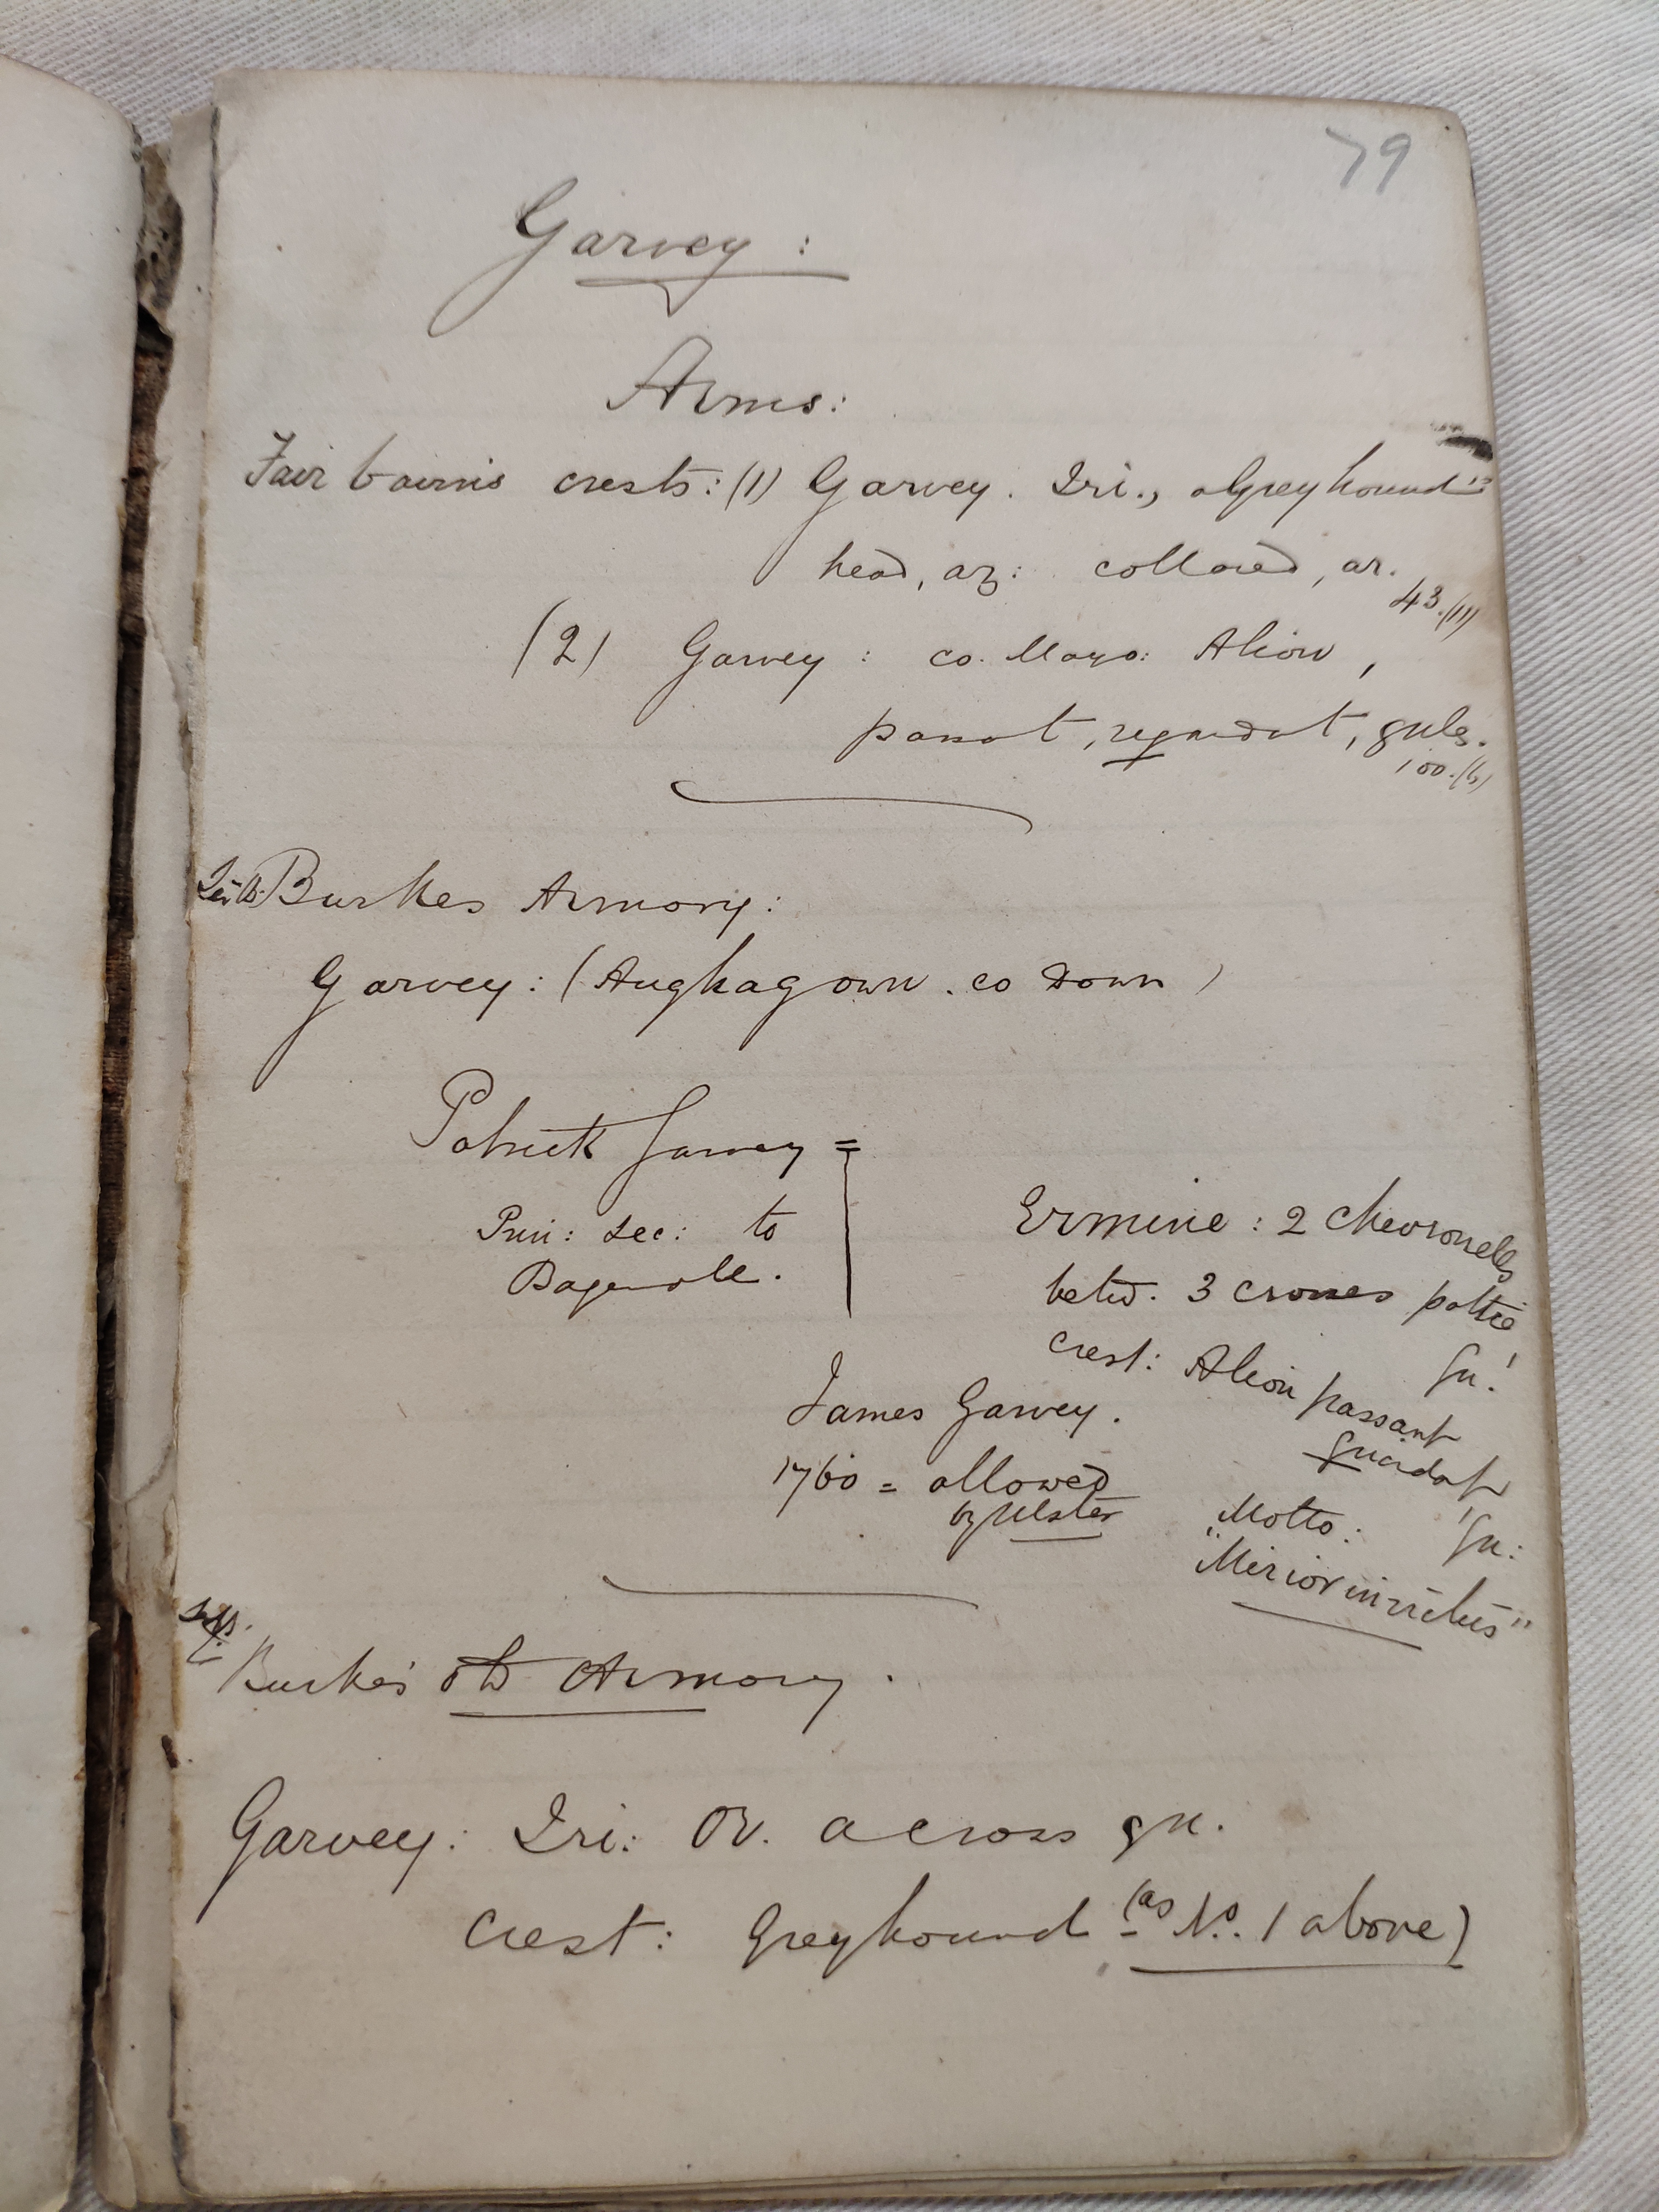 79
Garvey:
Arms:
Fairbairn's crests: (1) Garvey. Iri., a Greyhound's
head, az: collared, ar.
43. (11)
(2) Garvey: co. Mayo: A lion,
passat, regardat, guls.
100. (6)
Burkes Armory:
Garvey: (Aughagown. co Down)
Patrick Garvey =
Priv: sec: to
Bagenale.
Ermine: 2 chevronells
betw. 3 crosses pattée
gu!
crest: A lion passant
guardat
gu:
James Garvey.
1760 = allowed
by Ulster
Motto:
"Mirior invictus"
Burke's old Armory.
Garvey: Iri: Or. a cross gu.
crest: Greyhound (as No. 1 above)